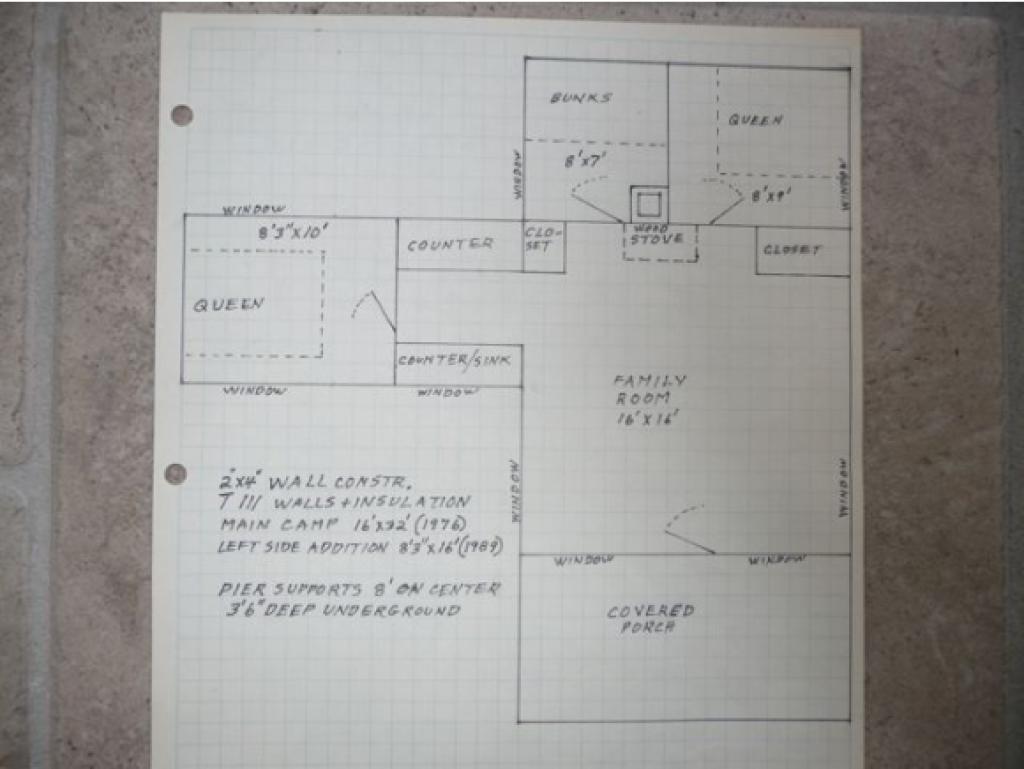 BUNKS
QUEEN
8'x7'
WINDOW
WINDOW
8'x9'
WINDOW
8'3"x10'
COUNTER
CLO-
SET
WOOD
STOVE
CLOSET
QUEEN
COUNTER/SINK
WINDOW
WINDOW
FAMILY
ROOM
16'x16'
WINDOW
WINDOW
2"x4" WALL CONSTR.
T 111 WALLS + INSULATION
MAIN CAMP 16'x32' (1976)
LEFT SIDE ADDITION 8'3"x16' (1989)
WINDOW
WINDOW
PIER SUPPORTS 8' ON CENTER
3'6" DEEP UNDERGROUND
COVERED
PORCH